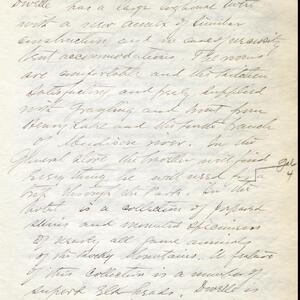 Dwelle has a large log house here
with a new annex of similar
construction and in cases of necessity
tent accommodations. The rooms
are comfortable and the kitchen
satisfactory, and freely supplied
with grayling and trout from
Henry Lake and the south branch
of Madison river. In the
general store the traveller will find
everything he will need for
trip through the Park. In the
hotel is a collection of prepared
skins and mounted specimens
of nearly all game animals
of the Rocky Mountains. A feature
of this collection is a number of
superb Elk heads. Dwelle is
Gal
4